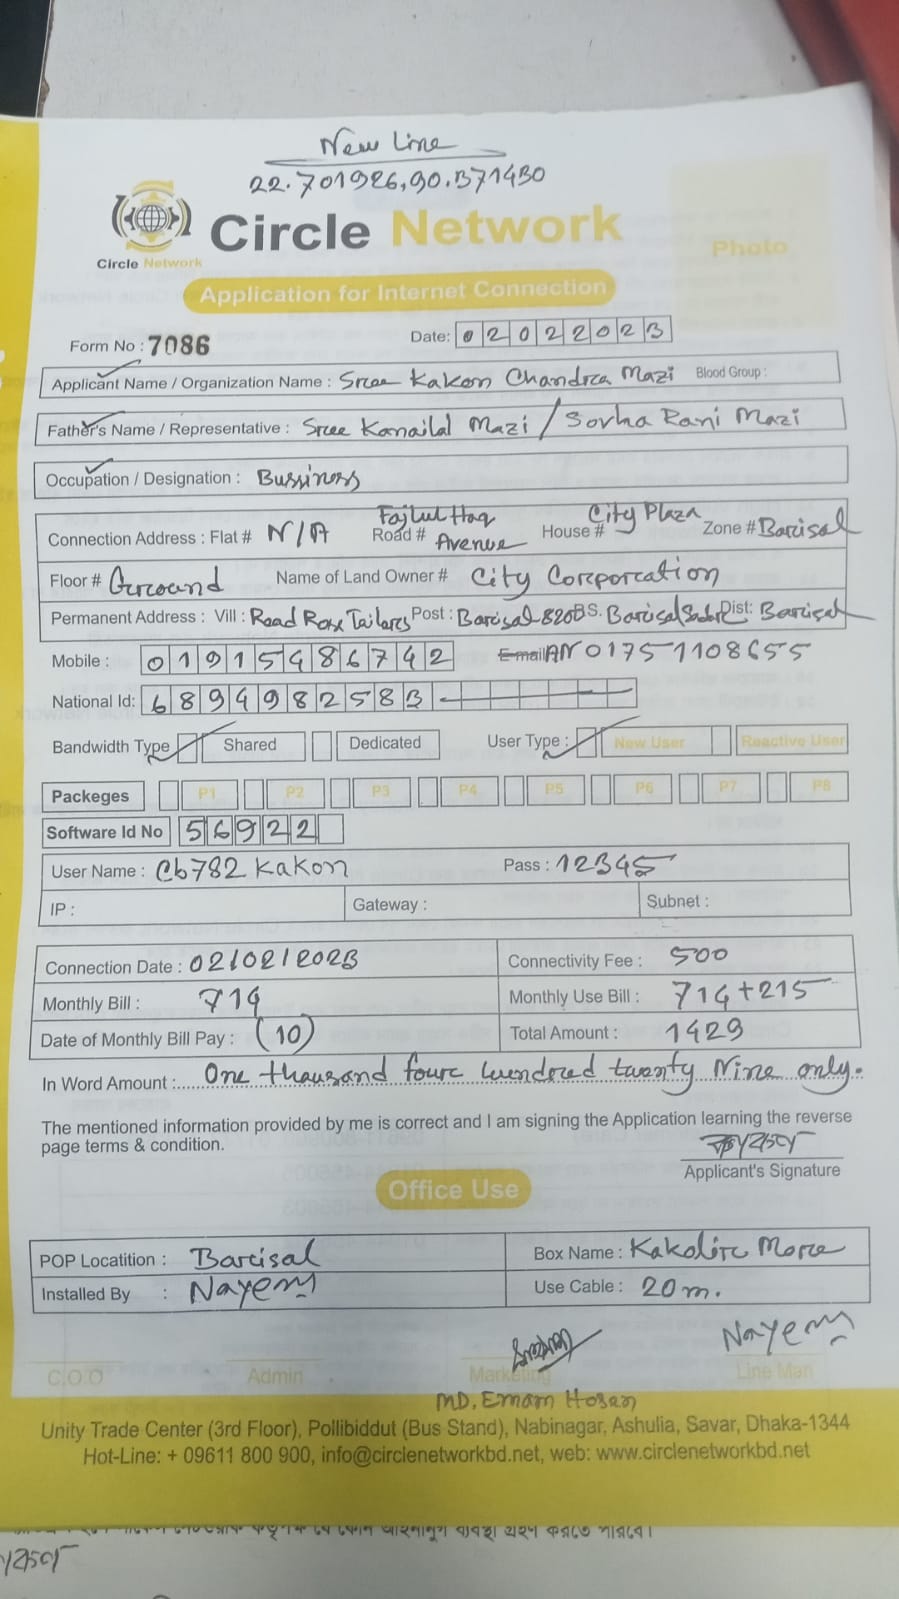 New Line
22.701926,90.371430
Circle Network
Circle Network
Photo
Application for Internet Connection
Form No : 7086
Date: 02022023
Applicant Name / Organization Name : Sree Kakon Chandra Mazi Blood Group :
Father's Name / Representative : Sree Kanailal Mazi / Sovha Rani Mazi
Occupation / Designation : Bussiness
Connection Address : Flat # N/A Road # Fajlul Haq Avenue House # City Plaza Zone # Barisal
Floor # Ground Name of Land Owner # City Corporation
Permanent Address : Vill : Road Rose Tailars Post : Barisal-8200 P.S. Barisal Sadar Dist: Barisal
Mobile : 01915486742 Email AN 01751108655
National Id: 6894982583
Bandwidth Type Shared Dedicated User Type : New User Reactive User
Packeges P1 P2 P3 P4 P5 P6 P7 P8
Software Id No 56922
User Name : Cb782 Kakon Pass : 12345
IP : Gateway : Subnet :
Connection Date : 02/02/2023 Connectivity Fee : 500
Monthly Bill : 714 Monthly Use Bill : 714+215
Date of Monthly Bill Pay : (10) Total Amount : 1429
In Word Amount : One thousand four hundred twenty Nine only.
The mentioned information provided by me is correct and I am signing the Application learning the reverse
page terms & condition.
Applicant's Signature
Office Use
POP Locatition : Barisal Box Name : Kakolir More
Installed By : Nayem Use Cable : 20m.
Nayem
C.O.O Admin Marketing Line Man
MD. Emam Hosen
Unity Trade Center (3rd Floor), Pollibiddut (Bus Stand), Nabinagar, Ashulia, Savar, Dhaka-1344
Hot-Line: + 09611 800 900, info@circlenetworkbd.net, web: www.circlenetworkbd.net
যে কোন আইনানুগ ব্যবস্থা গ্রহণ করতে পারবে।